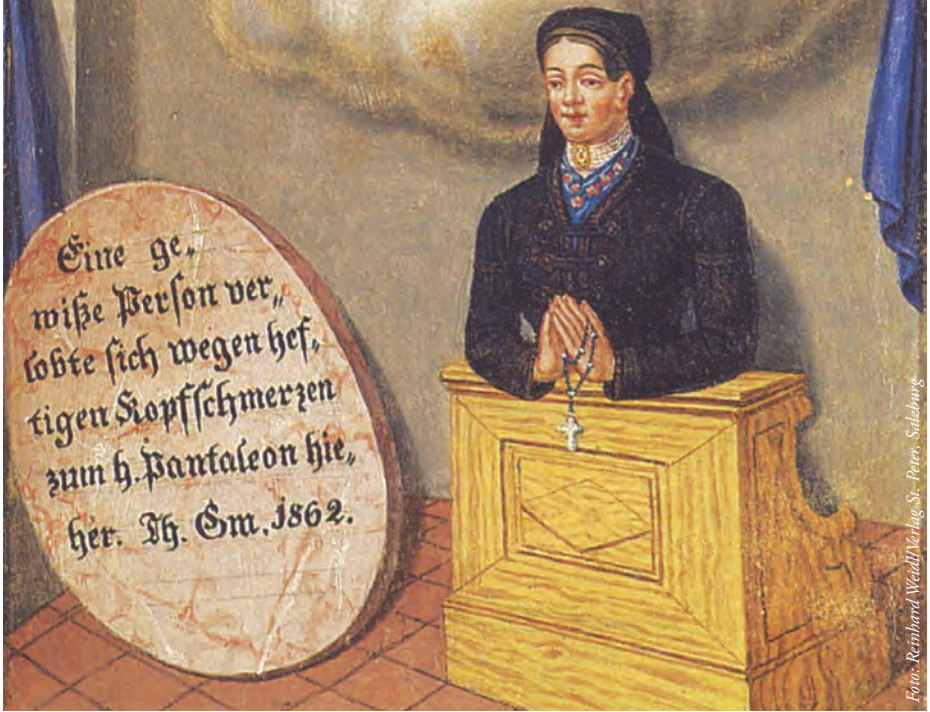 Eine ge„
wiße Perſon ver„
lobte ſich wegen hef„
tigen Kopfſchmerzen
zum h. Pantaleon hie„
her. Th. Gm. 1862.
Foto: Reinhard Weidl/Verlag St. Peter, Salzburg